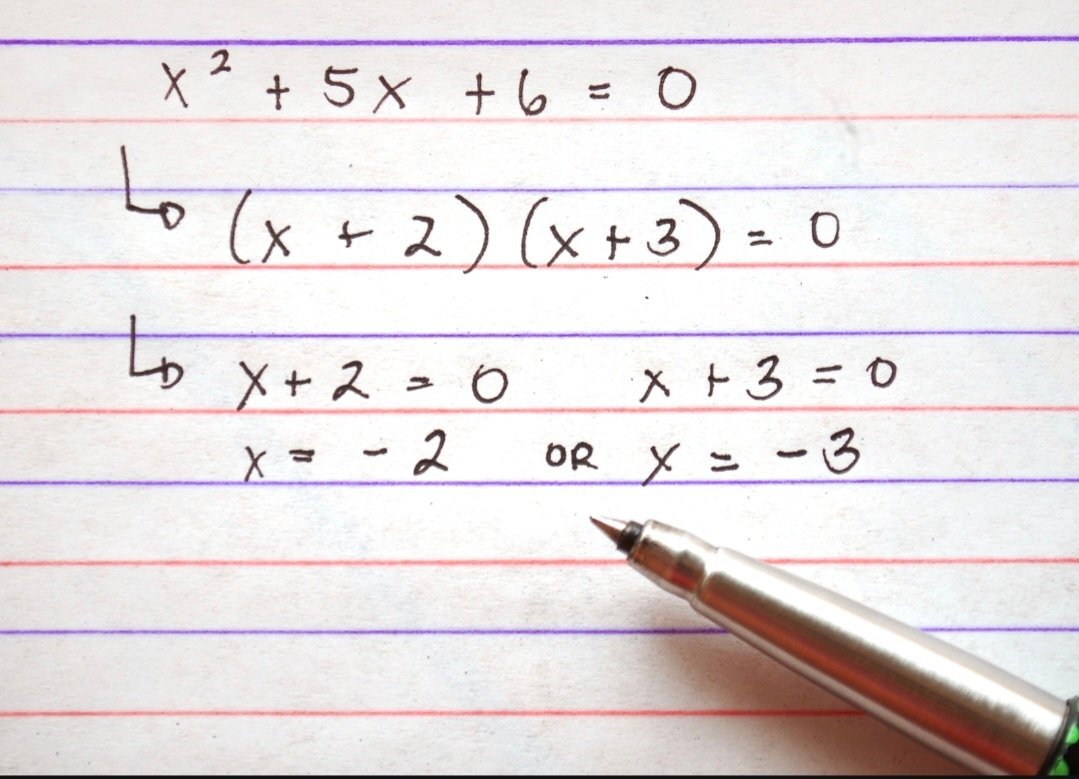 x² + 5x + 6 = 0
↳ (x + 2) (x + 3) = 0
↳ x + 2 = 0 x + 3 = 0
x = - 2 OR x = - 3